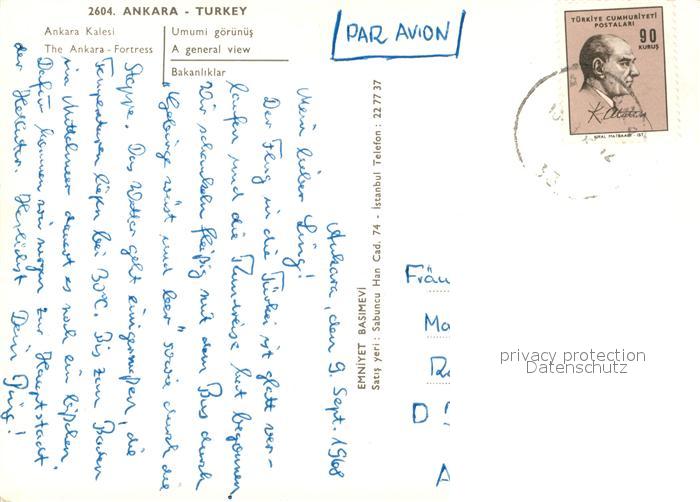 2604. ANKARA - TURKEY
Ankara Kalesi
The Ankara-Fortress
Umumi görünüş
A general view
Bakanlıklar
PAR AVION
TÜRKİYE CUMHURİYETİ
POSTALARI
90
KURUŞ
K. Atatürk
EMNİYET BASIMEVİ
Satış yeri: Sabuncu Han Cad. 74 - İstanbul Telefon: 22 77 37
Ankara, den 9. Sept. 1968
Mein lieber Ling!
Der Flug in die Türkei ist glatt ver-
laufen und die Rundreise hat begonnen.
Wir schaukeln fleißig mit dem Bus durch
"Gebirge wüst und leer" sowie durch die
Steppe. Das Wetter geht einigermaßen, die
Temperaturen liegen bei 30°C. Bis zum Baden
im Mittelmeer dauert es noch ein bißchen.
Dafür kommen wir morgen zur Hauptstadt
der Hethiter. Herzlichst Dein Ping!
Fräu
Ma
D
A
privacy protection
Datenschutz